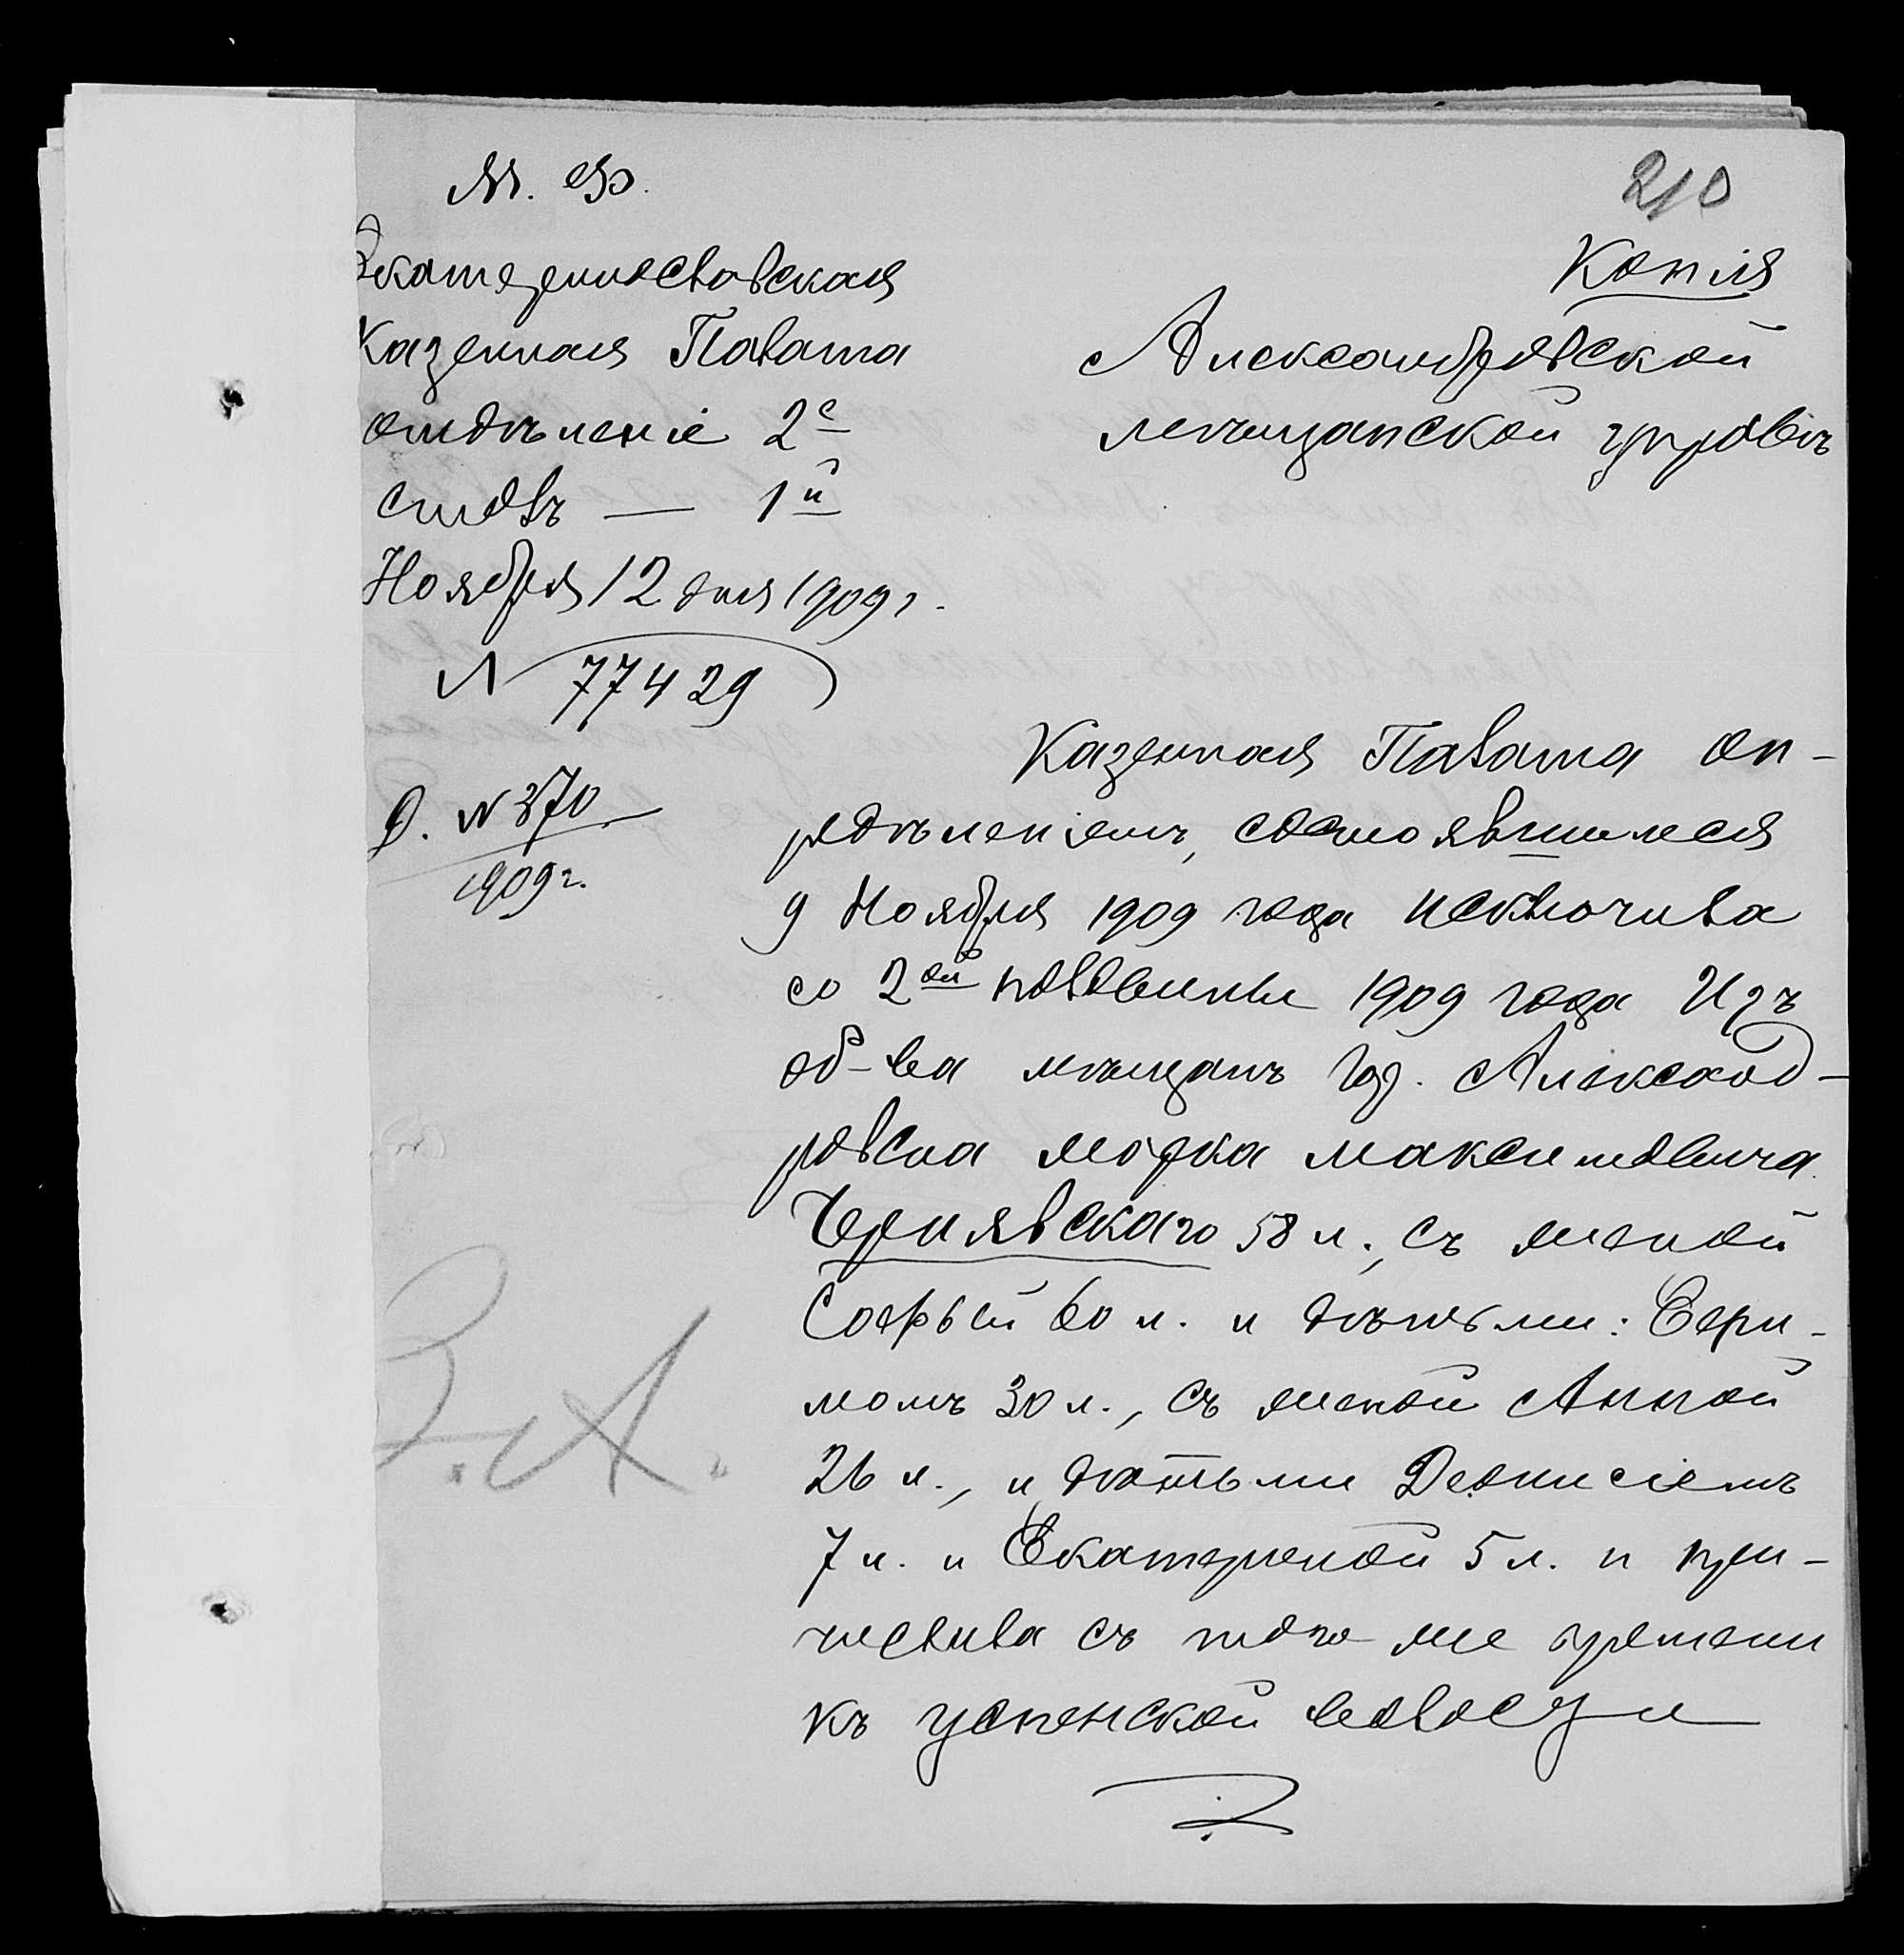 М. Ф.
210
Екатеринославская
Казенная Палата
отдѣленіе 2е
столъ — 1й
Ноября 12 дня 1909 г.
N 77429
Д. N 370
1909 г.
Копія
Александровской
мѣщанской управѣ
Казенная Палата оп-
редѣленіемъ, состоявшимся
9 Ноября 1909 года исключила
со 2ой половины 1909 года изъ
об-ва мѣщанъ гор. Александ-
ровска Марка Максимовича
Чернявскаго 58 л., съ женой
Софьей 60 л. и дѣтьми:
30 л., съ женой Анной
26 л., и дѣтьми Деонисіемъ
7 л. и Екатериной 5 л. и при-
числила съ того же времени
къ Успенской волости
З. А.